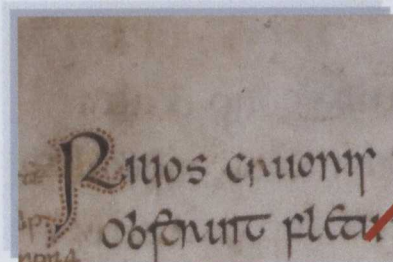 Riuos cruoris
obstruit fletu